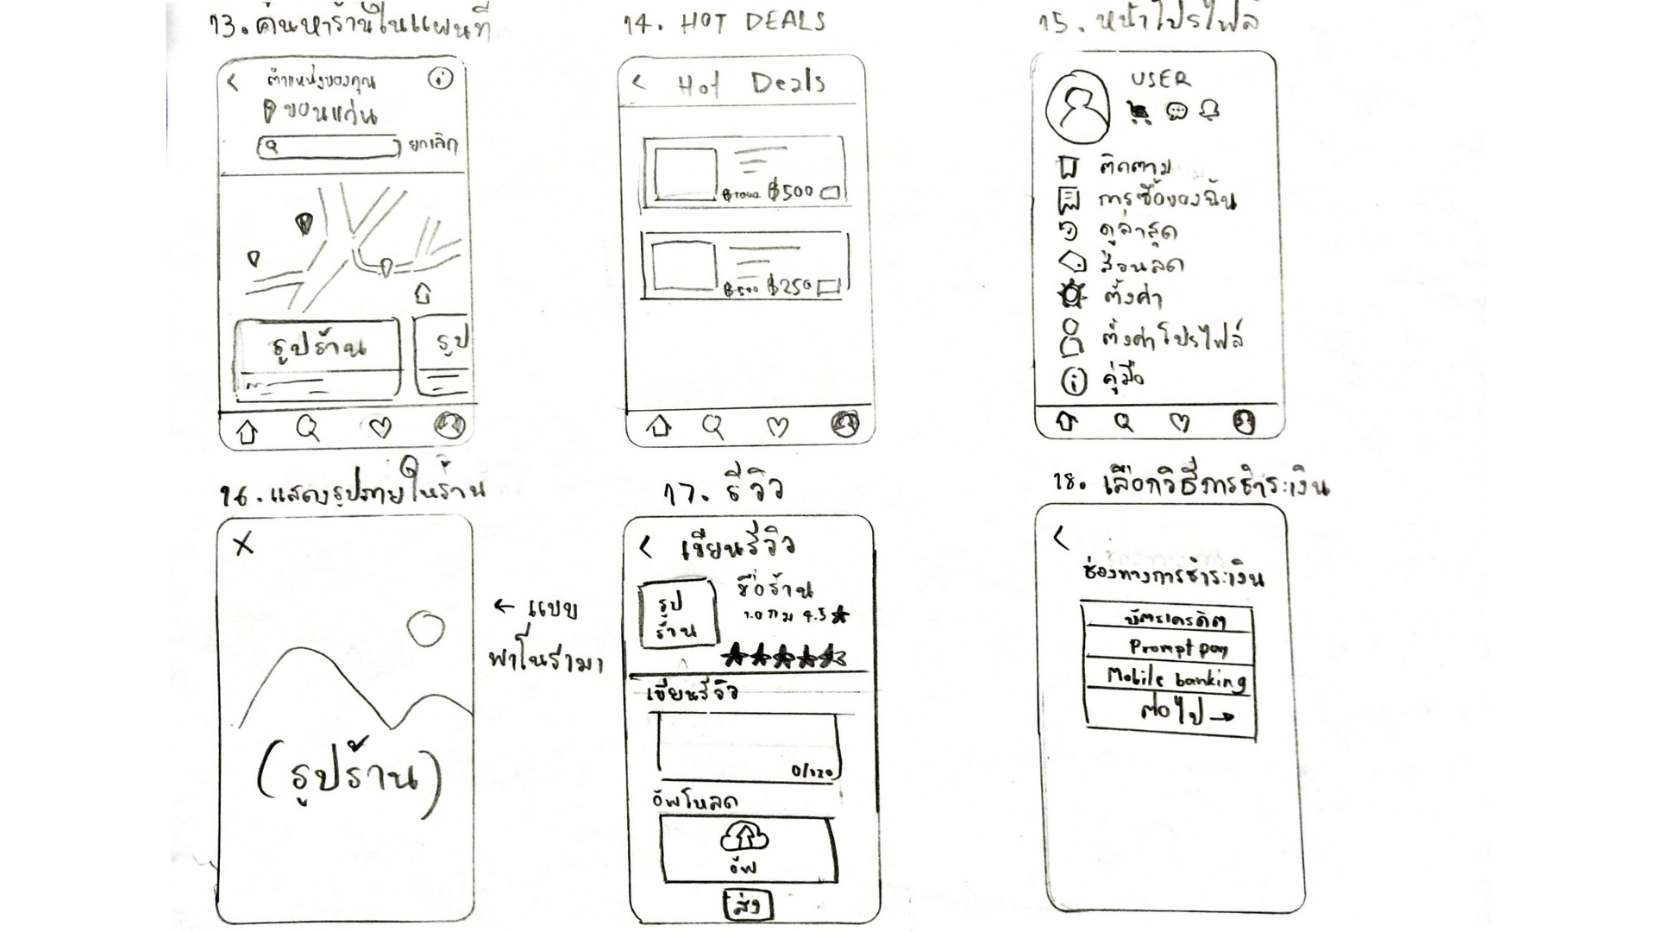 13. ค้นหาร้านในแผนที่
ตำแหน่งของคุณ
ขอนแก่น
ยกเลิก
รูปร้าน
รูป
14. HOT DEALS
Hot Deals
฿1000 ฿500
฿500 ฿250
15. หน้าโปรไฟล์
USER
ติดตาม
การซื้อของฉัน
ดูล่าสุด
ส่วนลด
ตั้งค่า
ตั้งค่าโปรไฟล์
คู่มือ
16. แสดงรูปภายในร้าน
(รูปร้าน)
← แบบ
พาโนรามา
17. รีวิว
เขียนรีวิว
รูป
ร้าน
ชื่อร้าน
1.0 กม 4.5 ★
เขียนรีวิว
0/120
อัพโหลด
อัพ
ส่ง
18. เลือกวิธีการชำระเงิน
ช่องทางการชำระเงิน
บัตรเครดิต
Prompt pay
Mobile banking
ต่อไป →